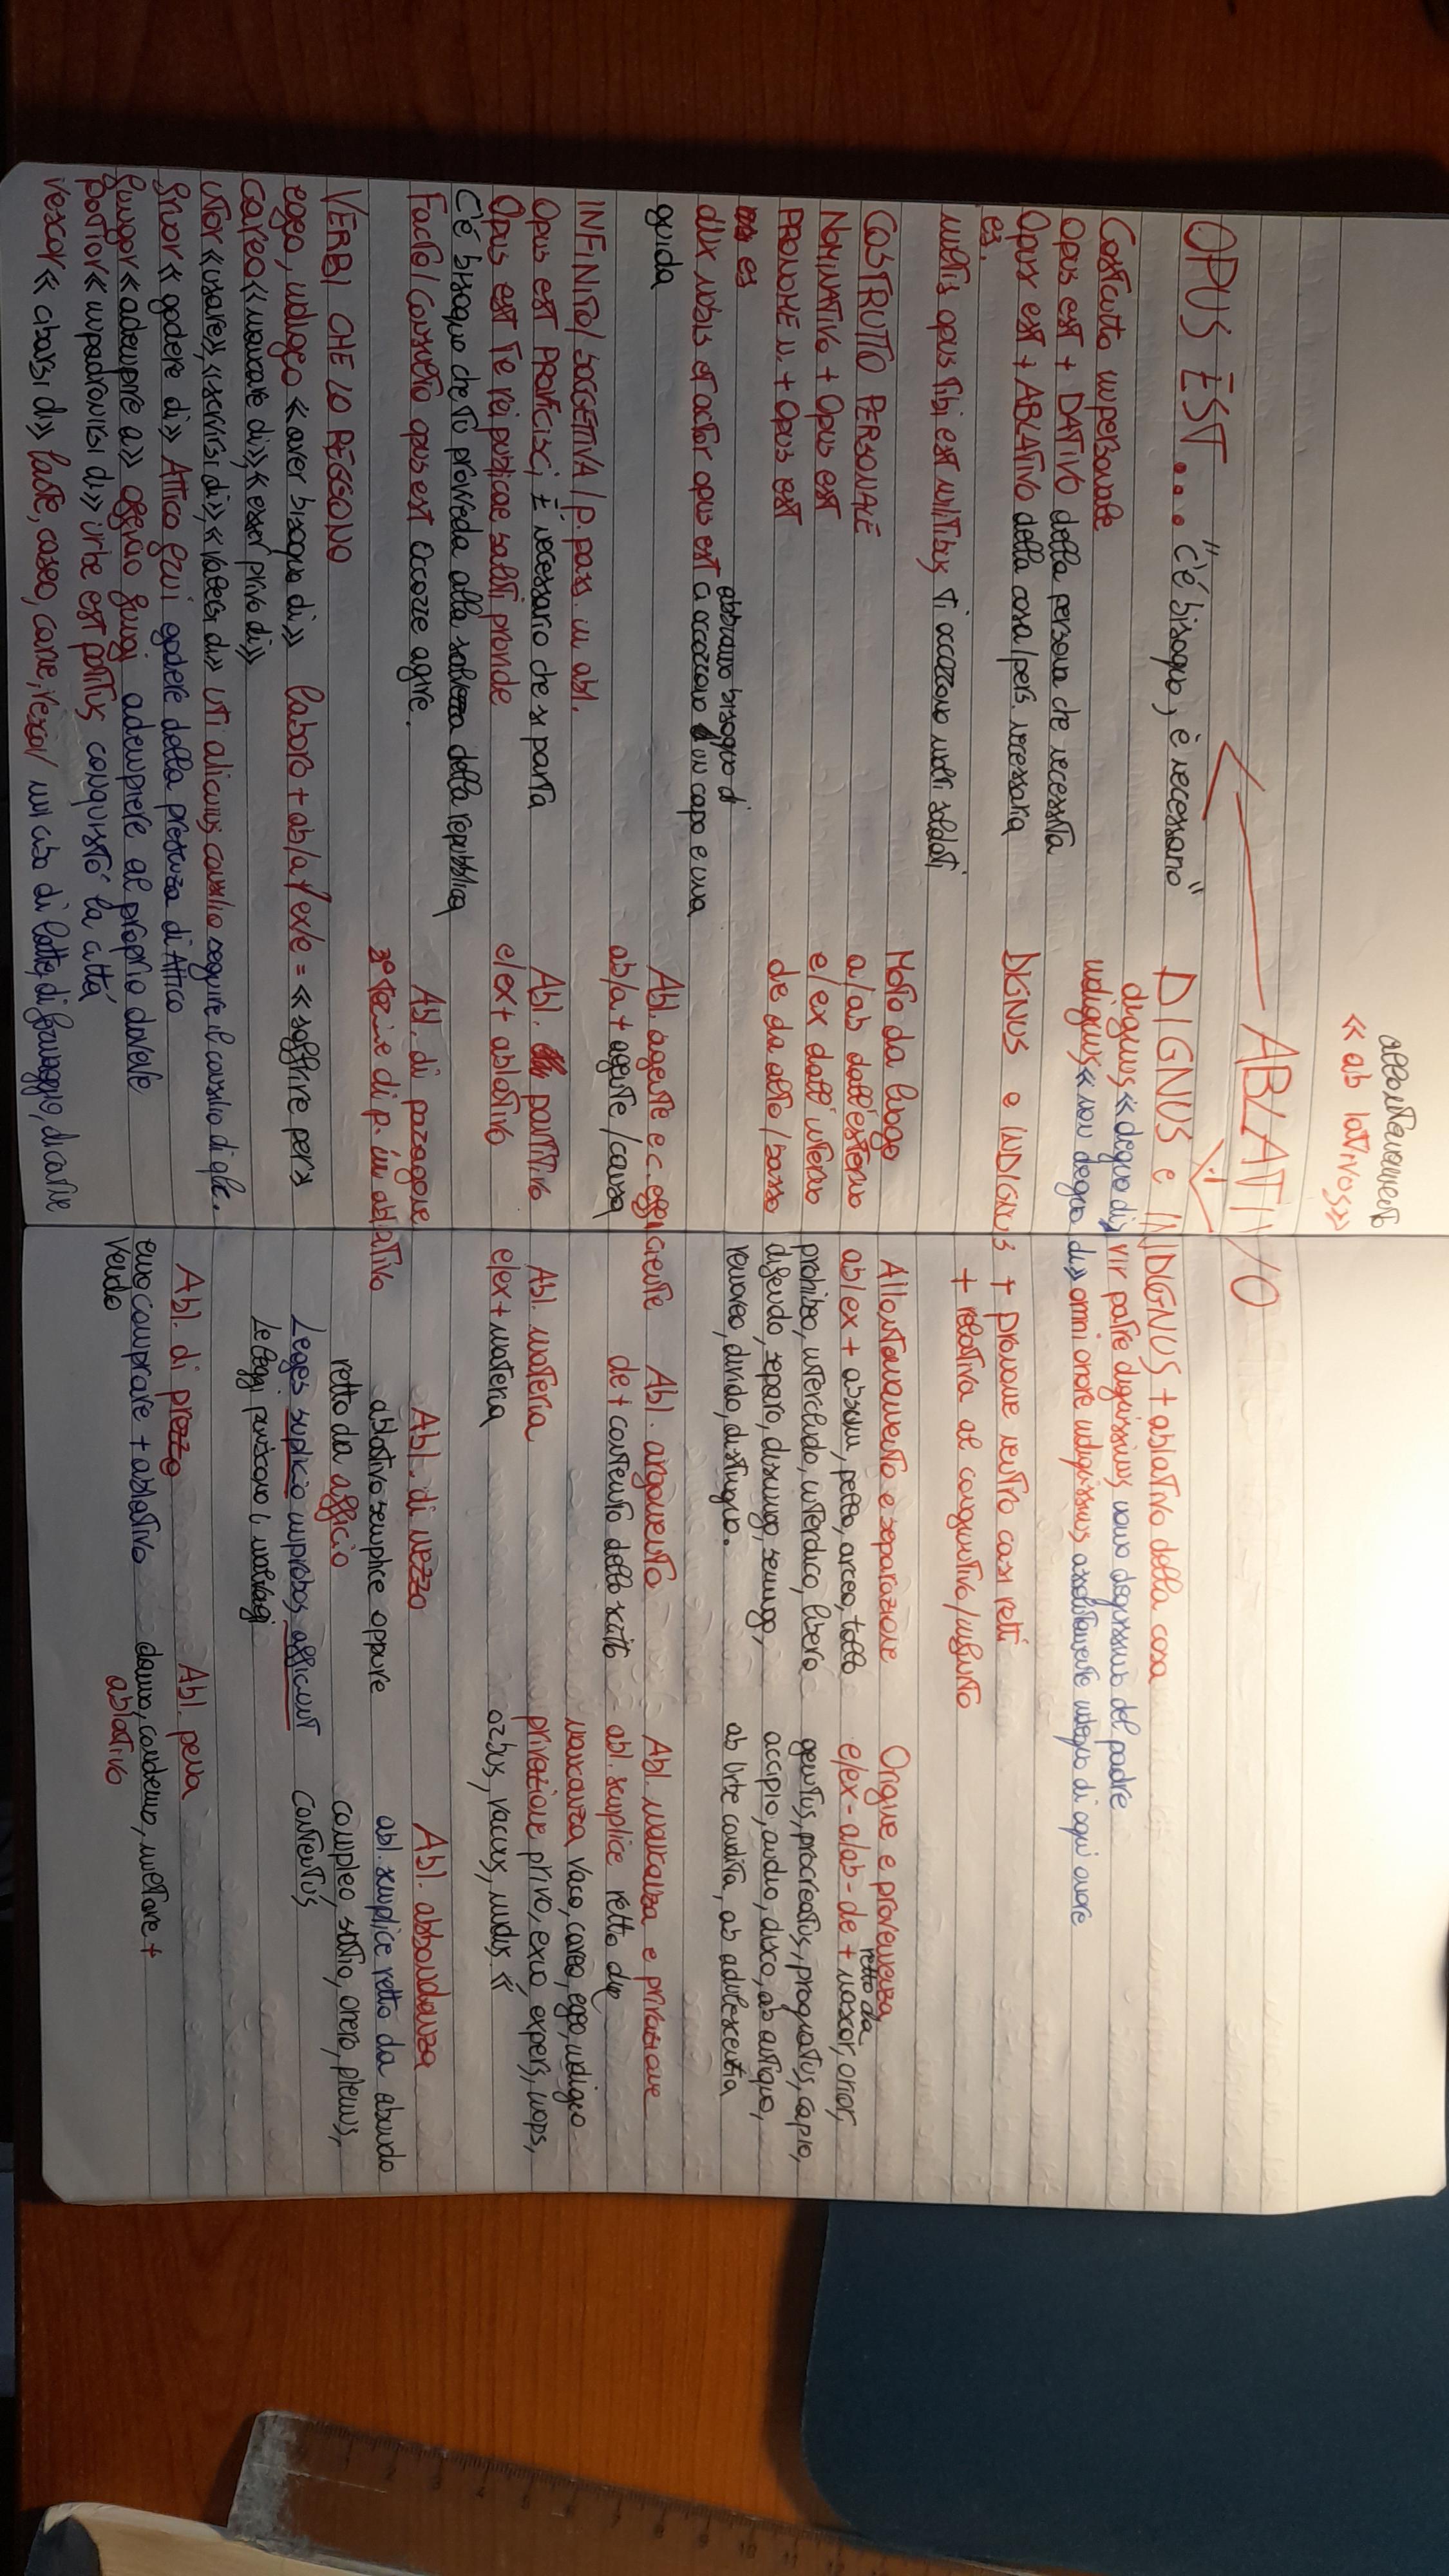 allontanamento
<< ab lativos>>
ABLATIVO
OPUS EST... "c'è bisogno, è necessario"
Costrutto impersonale
Opus est + DATIVO della persona che necessita
Opus est + ABLATIVO della cosa/pers. necessaria
es.
multis opus tibi est militibus, ti occorrono molti soldati
COSTRUTTO PERSONALE
NOMINATIVO + opus est
PRONOME n. + opus est
es
dux nobis et actor opus est ci occorrono un capo e una
abbiamo bisogno di
guida
INFINITO/ SOGGETTIVA / p. pass. in abl.
Opus est PROFICISCI, È necessario che si parta
Opus est te rei publicae saluti provide
C'è bisogno che tu provveda alla salvezza della repubblica
Facto/ Consueto opus est Occorre agire.
VERBI CHE LO REGGONO
egeo, indigeo << aver bisogno di>> laboro + ab/a/ex/e = << soffrire per>>
Careo << mancare di>>, << esser privo di>>
Utor << usare>>, << servirsi di>>, << valersi di>> uti alicuius consilio seguire il consiglio di qlc.
fruor << godere di>> Attico frui godere della presenza di Attico
fungor << adempire a>> officio fungi adempiere al proprio dovere
potior << impadronirsi di>> urbe est potitus conquistò la città
vescor << cibarsi di>> lacte, caseo, carne, vescor mi cibo di latte, di formaggio, di carne
DIGNUS e INDIGNUS + ablativo della cosa
dignus << degno di>> vir patre dignissimus uomo degnissimo del padre
indignus << non degno di>> omni onore indignissimus assolutamente indegno di ogni onore
DIGNUS e INDIGNUS + pronome neutro casi retti
+ relativa al congiuntivo/infinito
Moto da luogo
a/ab dall'esterno
e/ex dall'interno
de da alto/basso
Allontanamento e separazione
ab/ex + absum, pello, arceo, tollo
prohibeo, intercludo, interdico, libero
difendo, separo, disiungo, seiungo,
removeo, divido, distinguo.
Origine e provenienza
retto da
e/ex-a/ab-de + nascor, orior,
genitus, procreatus, prognatus, capio,
accipio, audio, disco, ab antiquo,
ab Urbe condita, ab adulescentia
Abl. agente e c. efficiente
ab/a + agente /causa
Abl. argomento
de + contenuto dello scritto
Abl. mancanza e privazione
- abl. semplice retto da
mancanza vaco, careo, egeo, indigeo
privazione privo, exuo, expers, inops,
orbus, vacuus, nudus
Abl. partitivo
e/ex + ablativo
Abl. materia
e/ex + materia
Abl. di paragone
2° termine di p. in ablativo
Abl. di mezzo
ablativo semplice oppure
retto da afficio
Leges suplicio improbos afficiunt
Le leggi puniscono i malvagi
Abl. abbondanza
abl. semplice retto da abundo
compleo, satio, onero, plenus,
contentus
Abl. di prezzo
emo comprare + ablativo
Vendo
Abl. pena
damno, condemno, multare +
ablativo